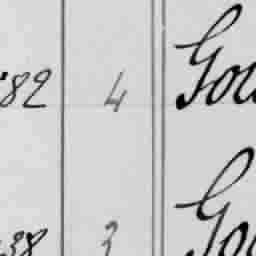 82 4 Gou
38 3 Go